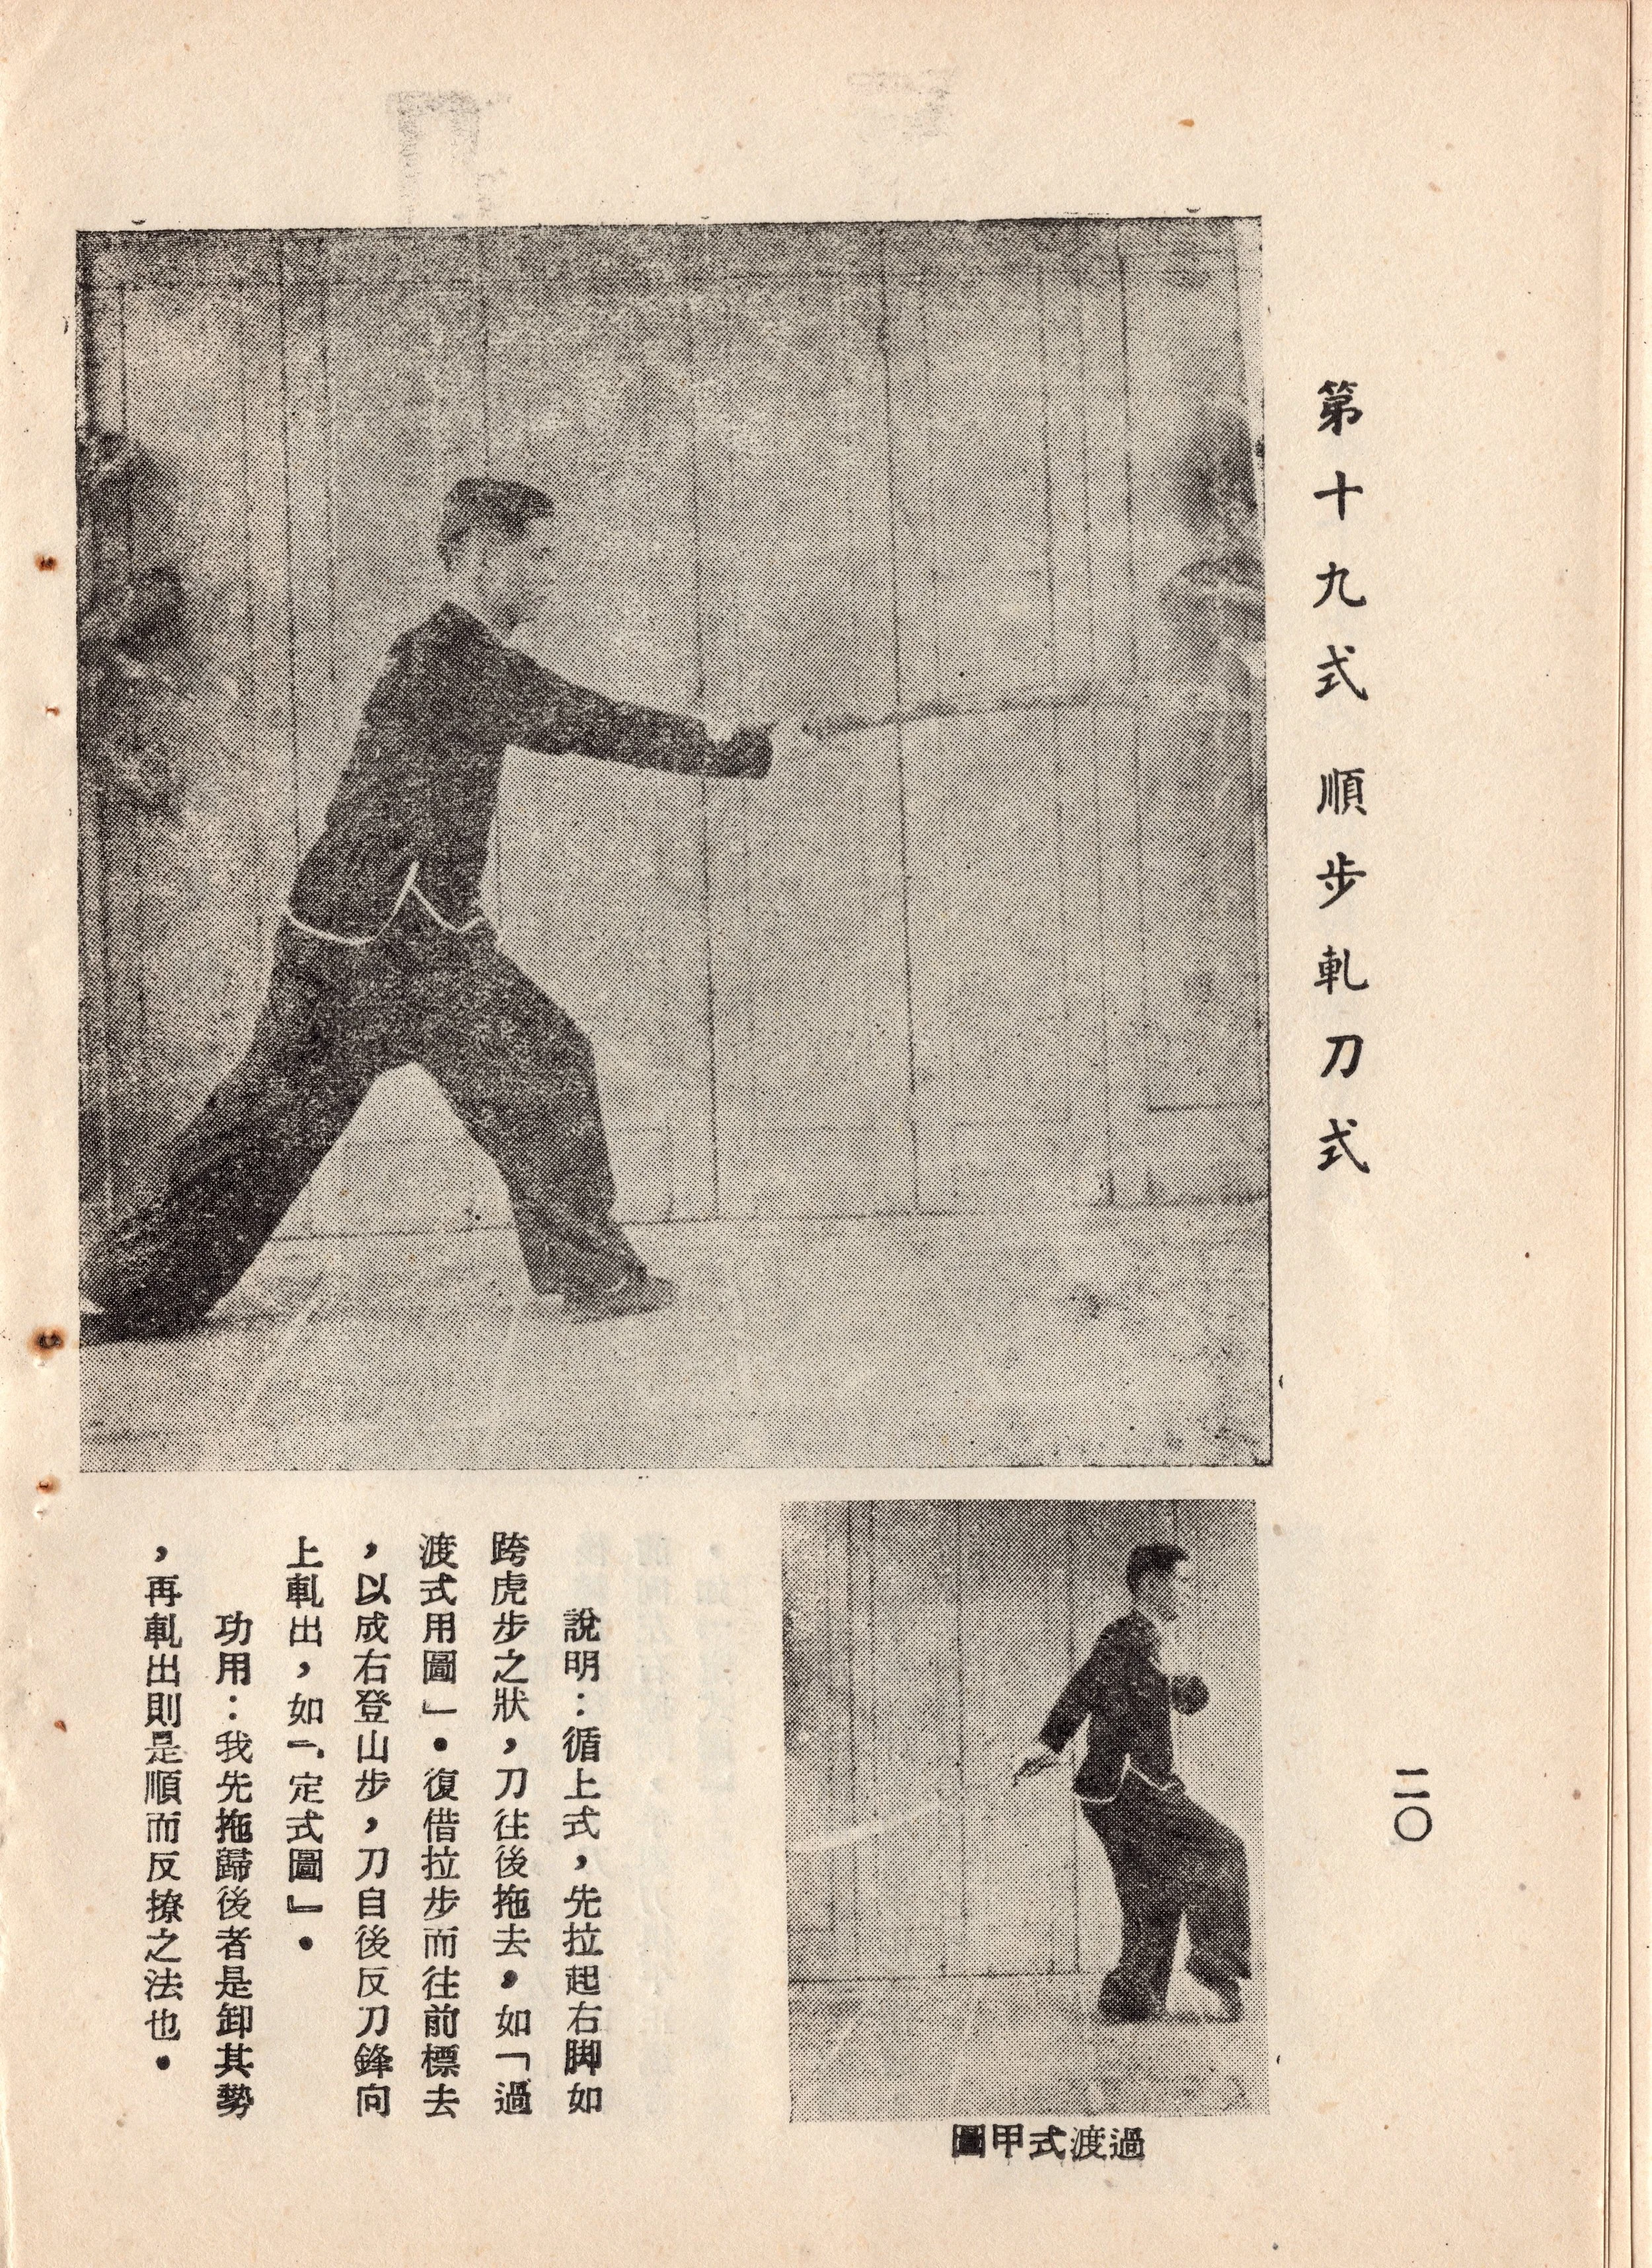 第十九式　順步軋刀式
二〇
過渡式甲圖
說明：循上式，先拉起右脚如
跨虎步之狀，刀往後拖去，如「過
渡式用圖」．復借拉步而往前標去
，以成右登山步，刀自後反刀鋒向
上軋出，如「定式圖」．
功用：我先拖歸後者是卸其勢
，再軋出則是順而反撩之法也．